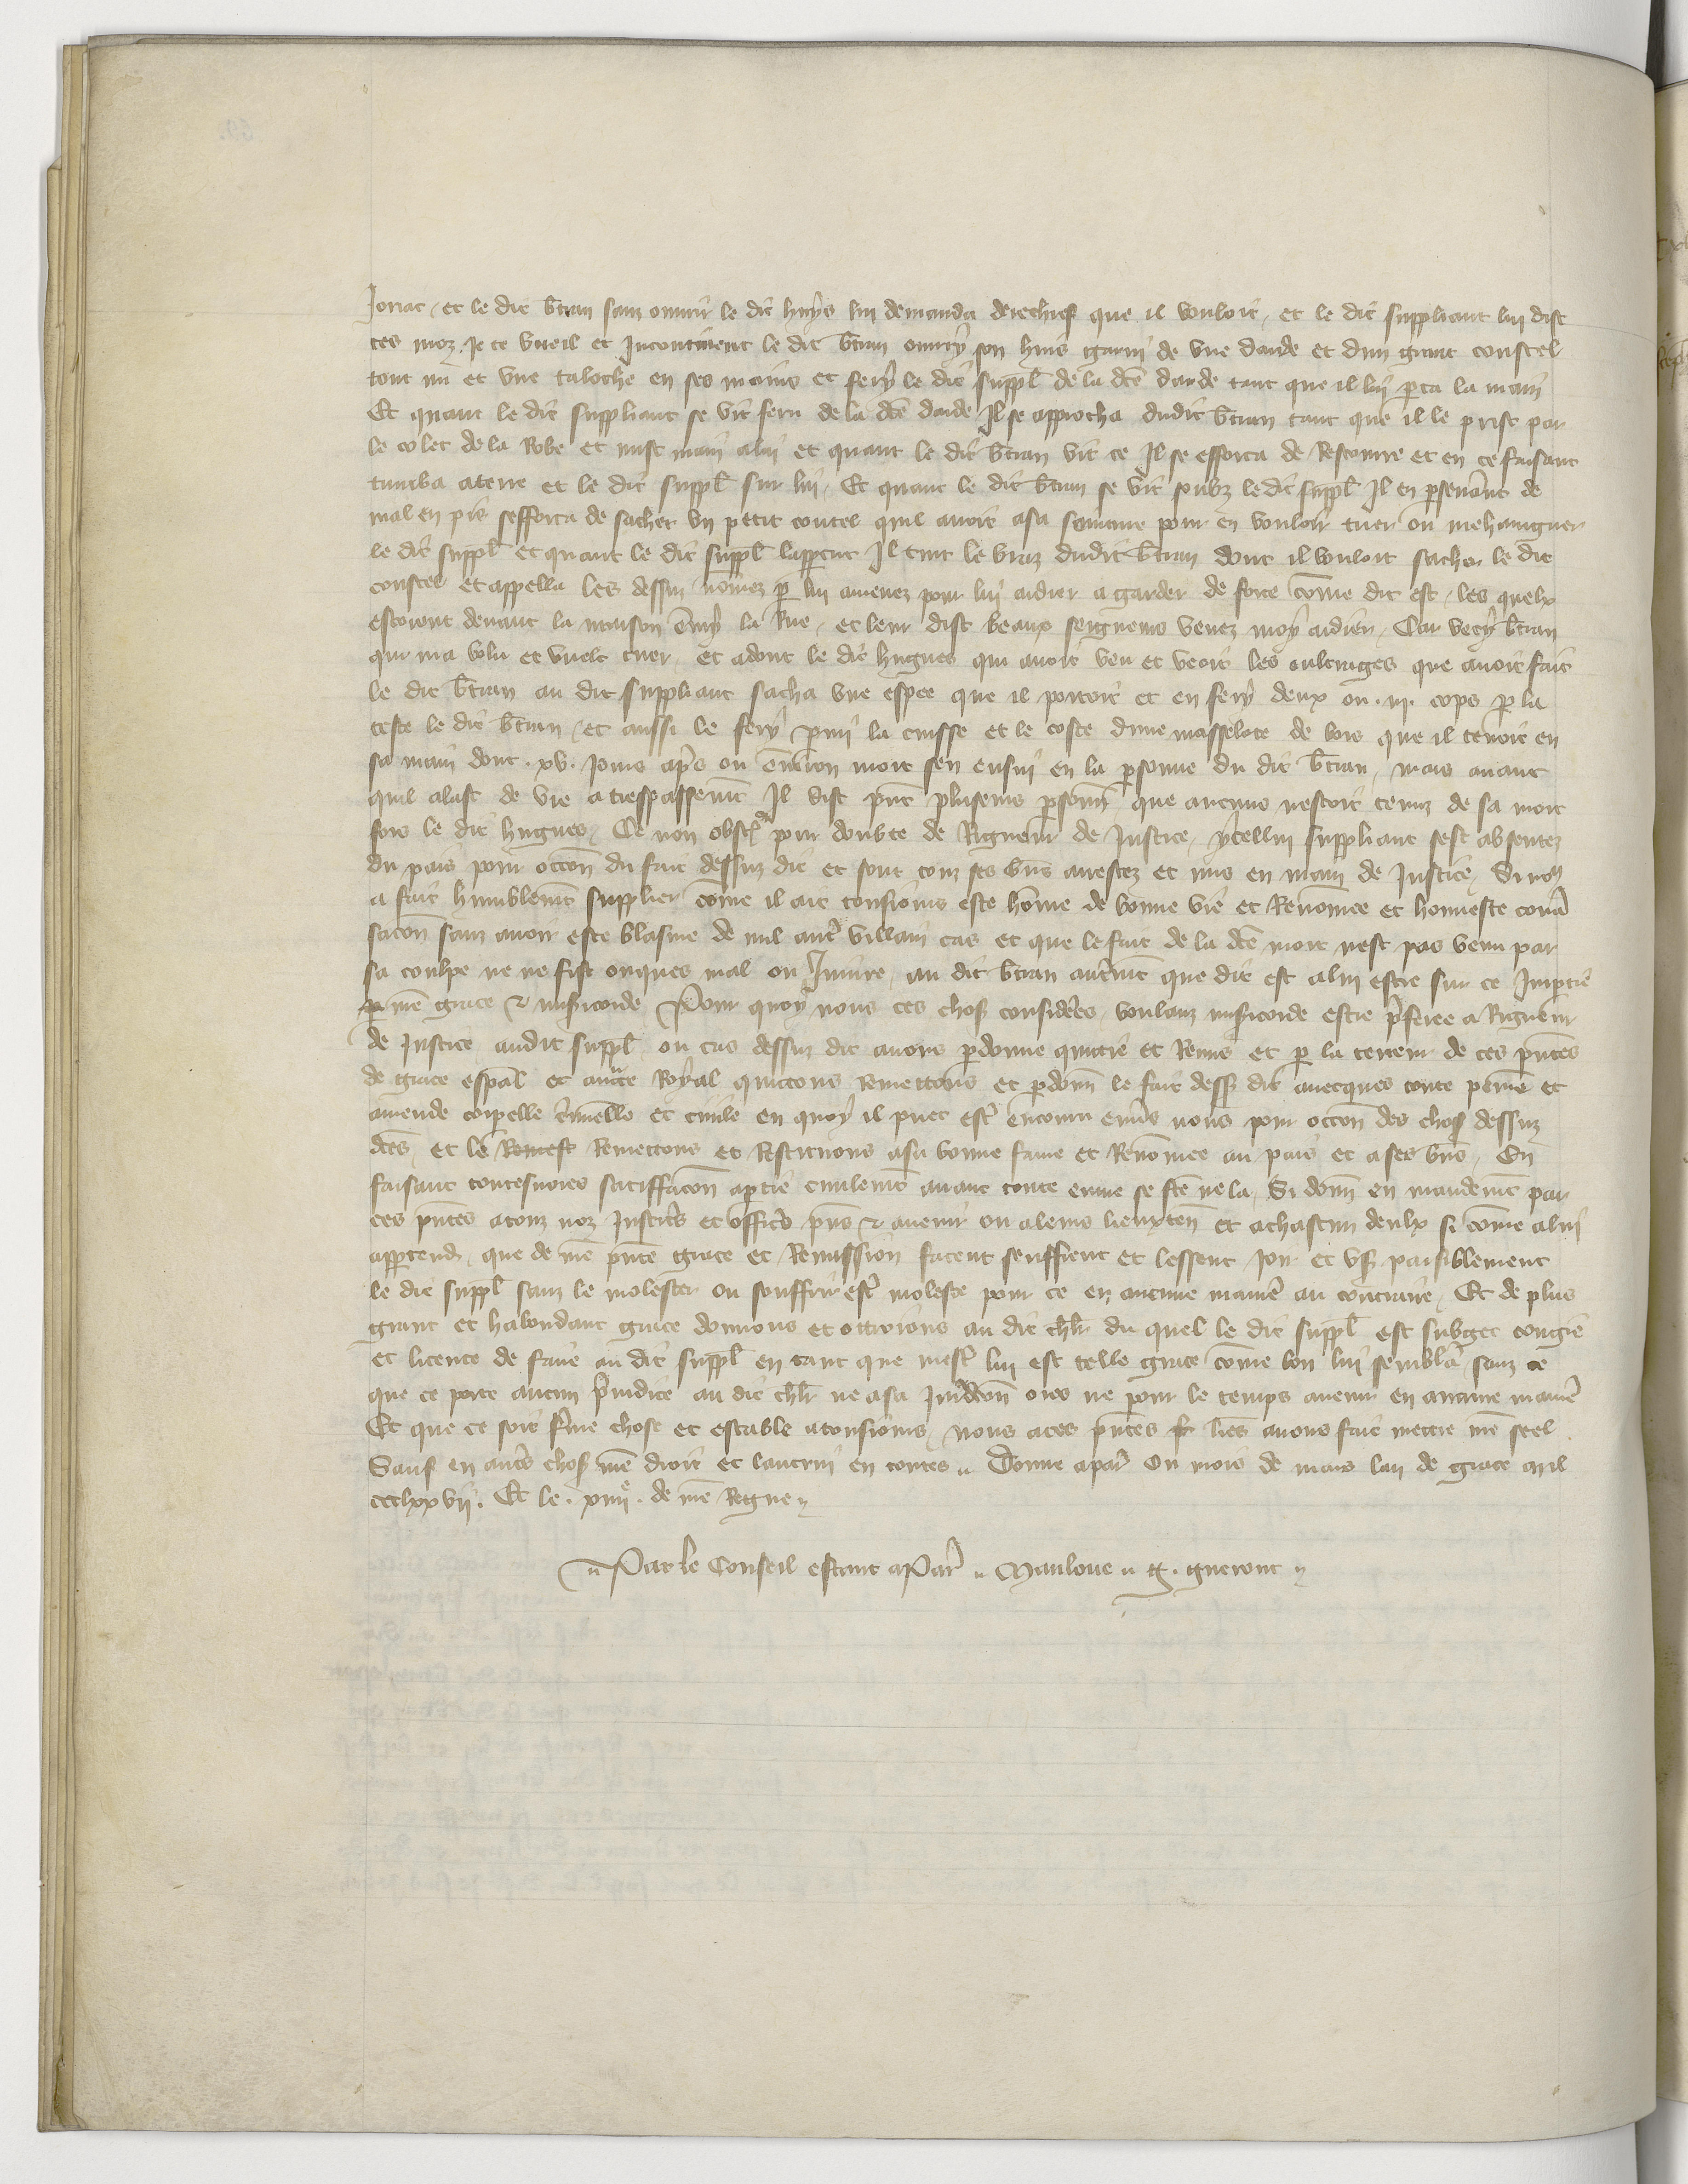 Jorrat, et le dit Btran sanz ouvrir le dit huys lui demanda derechief que il vouloit, et le dit suppliant lui dist
ces moz Je te vueil et Incontinent le dit Btran ouvry son huis garni de une darde et dun grant coustel
tout nu et une taloche en ses mains et fery le dit suppl de la dce darde tant que il lui pca la main
Et quant le dit suppliant se vit feru de la dce darde Il se approcha dudit Btran tant que il le prist par
le colet de la Robe et mist main alui et quant le dit Btran vit ce Il se efforca de Rescourre et en ce faisant
tumba aterre et le dit suppl sur lui, Et quant le dit Btran se vit soubz le dit suppl Il en psevant de
mal en pis sefforca de sacher un petit coutel quil avoit asa senture pour en vouloir tuer ou mehaugner
le dit suppl et quant le dit suppl lappcut Il tint le braz dudit Btran dont il vouloit sacher le dit
coustel et appella les dessus nomez p lui amenez pour lui aidier a garder de force come dit est, les quelx
estoient devant la maison emy la Rue, et leur dist beaux seigneurs venez moy aidier, Car vecy Btran
qui ma volu et vuelt tuer, et adont le dit hugues qui avoit veu et veoit les oultrages que avoit fait
le dit Btran au dit suppliant sacha une espee que il portoit et en fery deux ou .iij. cops p la
teste le dit Btran, et aussi le fery pmi la cuisse et le coste dune masselote de bois que il tenoit en
sa main dont .xv. Jours aps ou environ mort sen ensui en la psonne du dit Btran, mais avant
quil alast de vie a trespassemt Il dist pnt pluseurs psonn que aucuns nestoit tenuz de sa mort
fors le dit hugues, Ce non obst pour doubte de Rigueur de Justice, ycellui suppliant sest absentez
du pais pour occon du fait dessuz dit et sont touz ses bns arestez et mis en main de Justice, Si no
a fait humblemt supplier come il ait tousiours este home de bonne vie et Renomee et honneste conv
sacon sanz avoir este blasme de nul autr villain cas et que le fait de la dce mort nest pas venu par
sa coulpe ne ne fist onques mal ou Iniure, au dit Btran autremt que dit est alui estre sur ce Imptie
p nre grace & misicorde, Pour quoy nous ces chos considerees, voulanz misicorde estre pferee a Rigueur
de Justice audit suppl ou cas dessuz dit avons pdonne quittie et Remis et p la teneur de ces pntes
de grace espal et aucte Royal quittons Remettons et pdonn le fait dess dit avecques toute peine et
amende corpelle criminelle et civile en quoy il puet est encouru envers nous pour occon des chos dessuz
dces, et le Remest Remettons et Restituons asa bonne fame et Renomee au pais et a ses bns, En
faisant toutesvoies satiffacon aptie civilemt avant toute euvre se fte ne la, Si donn en mandemt par
ces pntes atouz noz Justices et offics pns & avenir ou aleurs lieuxten et achascun deulx si come alui
apptendr, que de nre pnte grace et Remission facent seuffrent et lessent Joir et us paisiblement
le dit suppl sanz le molester ou souffrir est moleste pour ce en aucune maniere au contraire, Et de plus
grant et habondant grace donnons et ottroions au dit chlr du quel le dit suppl est subget congie
et licence de faire au dit suppl en tant que mest lui est telle grace come bon lui semblera sanz ce
que ce porte aucun preiudice au dit chlr ne asa Juridcon ores ne pour le temps avenir en aucune maniere
Et que ce soit ferme chose et estable atousiours, nous aces pntes lres avons fait mettre nre seel
Sauf en autres chos nre droit et lautrui en toutes. Donne apar Ou mois de mars lan de grace mil
ccclxxvii. Et le .xiiiie. de nre Regne
Par le Conseil estant aPar. Mauloue. G. gueront